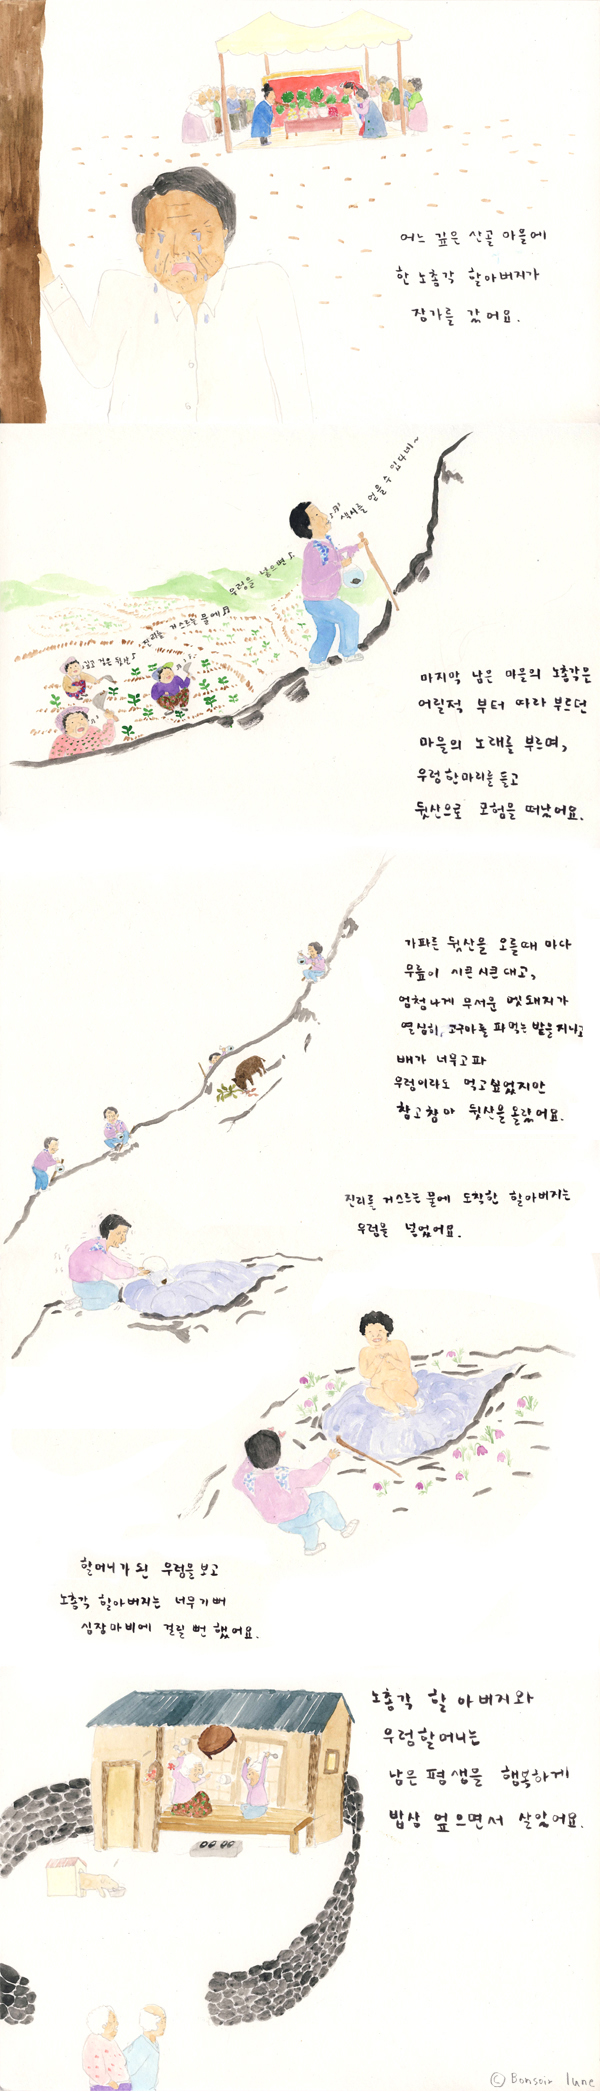 어느 깊은 산골 마을에
한 노총각 할아버지가
장가를 갔어요.
깊고 깊은 뒷산♪
진리를 거스르는 물에♬
우렁을 넣으면♪
색시를 얻을 수 있다네~
마지막 남은 마을의 노총각은
어릴적 부터 따라 부르던
마을의 노래를 부르며,
우렁 한마리를 들고
뒷산으로 모험을 떠났어요.
가파른 뒷산을 오를때 마다
무릎이 시큰시큰 대고,
엄청나게 무서운 멧돼지가
열심히, 고구마를 파먹는 밭을 지나고
배가 너무고파
우렁이라도 먹고싶었지만
참고 참아 뒷산을 올랐어요.
진리를 거스르는 물에 도착한 할아버지는
우렁을 넣었어요.
할머니가 된 우렁을 보고
노총각 할아버지는 너무기뻐
심장마비에 걸릴 뻔 했어요.
노총각 할아버지와
우렁할머니는
남은 평생을 행복하게
밥상 엎으면서 살았어요.
© Bonsoir lune